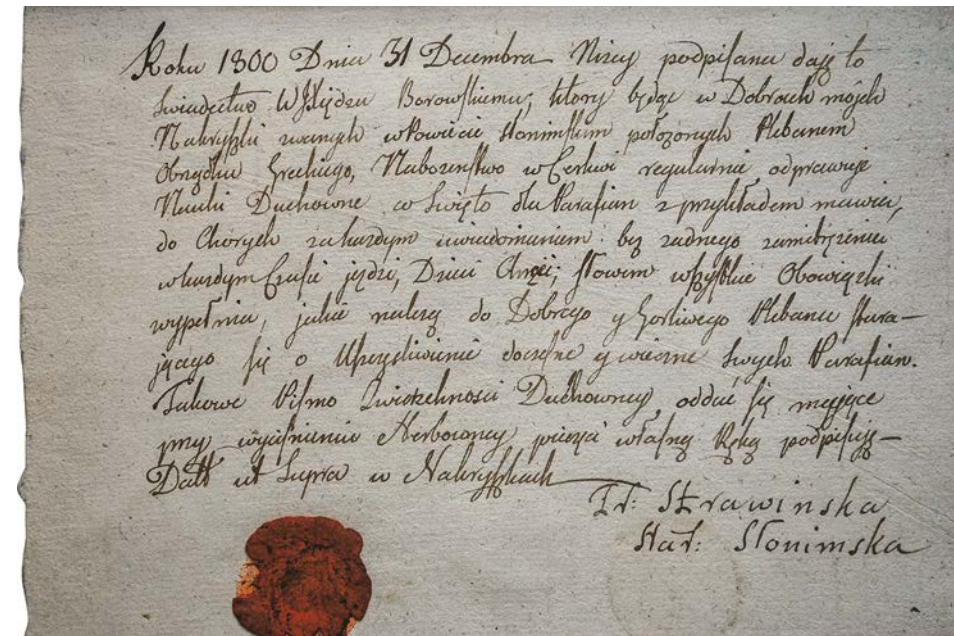 Roku 1800 Dnia 31 Decembra Niżey podpisana daję to
Swiadectwo W Xiędzu Borowskiemu, ktory będąc w Dobrach moich
Nakryszki zwanych w Powiecie Słonimskim położonych Plebanem
Obrządku Greckiego, Nabożenstwo w Cerkwi regularnie odprawuje
Nauki Duchowne co Swięto dla Parafian z przykładem mawia,
do Chorych za każdym uwiadomieniem bez żadnego zamitrężenia
w każdym Czasie jezdzi, Dzieci Chrzci; słowem wszystkie Obowiązki
wypełnia, jakie należą do Dobrego y Gorliwego Plebana stara-
jącego się o Uszczęsliwienie doczesne y wieczne Swych Parafian.
Takowe Pismo Zwierzchnosci Duchowney oddać się mające
przy wycisnieniu Herbowney pieczęci własną Ręką podpisuję—
Datt ut Supra w Nakryszkach
Tr: Strawinska
Star: Słonimska